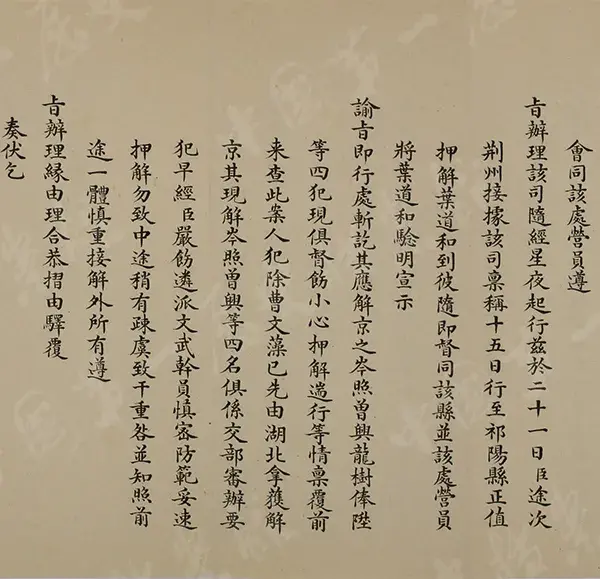 會同該處營員遵
旨辦理該司隨經星夜起行茲於二十一日臣途次
荆州接據該司稟稱十五日行至祁陽縣正值
押解葉道和到彼隨即督同該縣並該處營員
將葉道和驗明宣示
諭旨即行處斬訖其應解京之岑照曾興龍樹俸陞
等四犯現俱督飭小心押解遄行等情稟覆前
来查此案人犯除曹文藻已先由湖北拿獲解
京其現解岑照曾興等四名俱係交部審辦要
犯早經臣嚴飭遴派文武幹員慎密防範妥速
押解勿致中途稍有疎虞致干重咎並知照前
途一體慎重接解外所有遵
旨辦理緣由理合恭摺由驛覆
奏伏乞